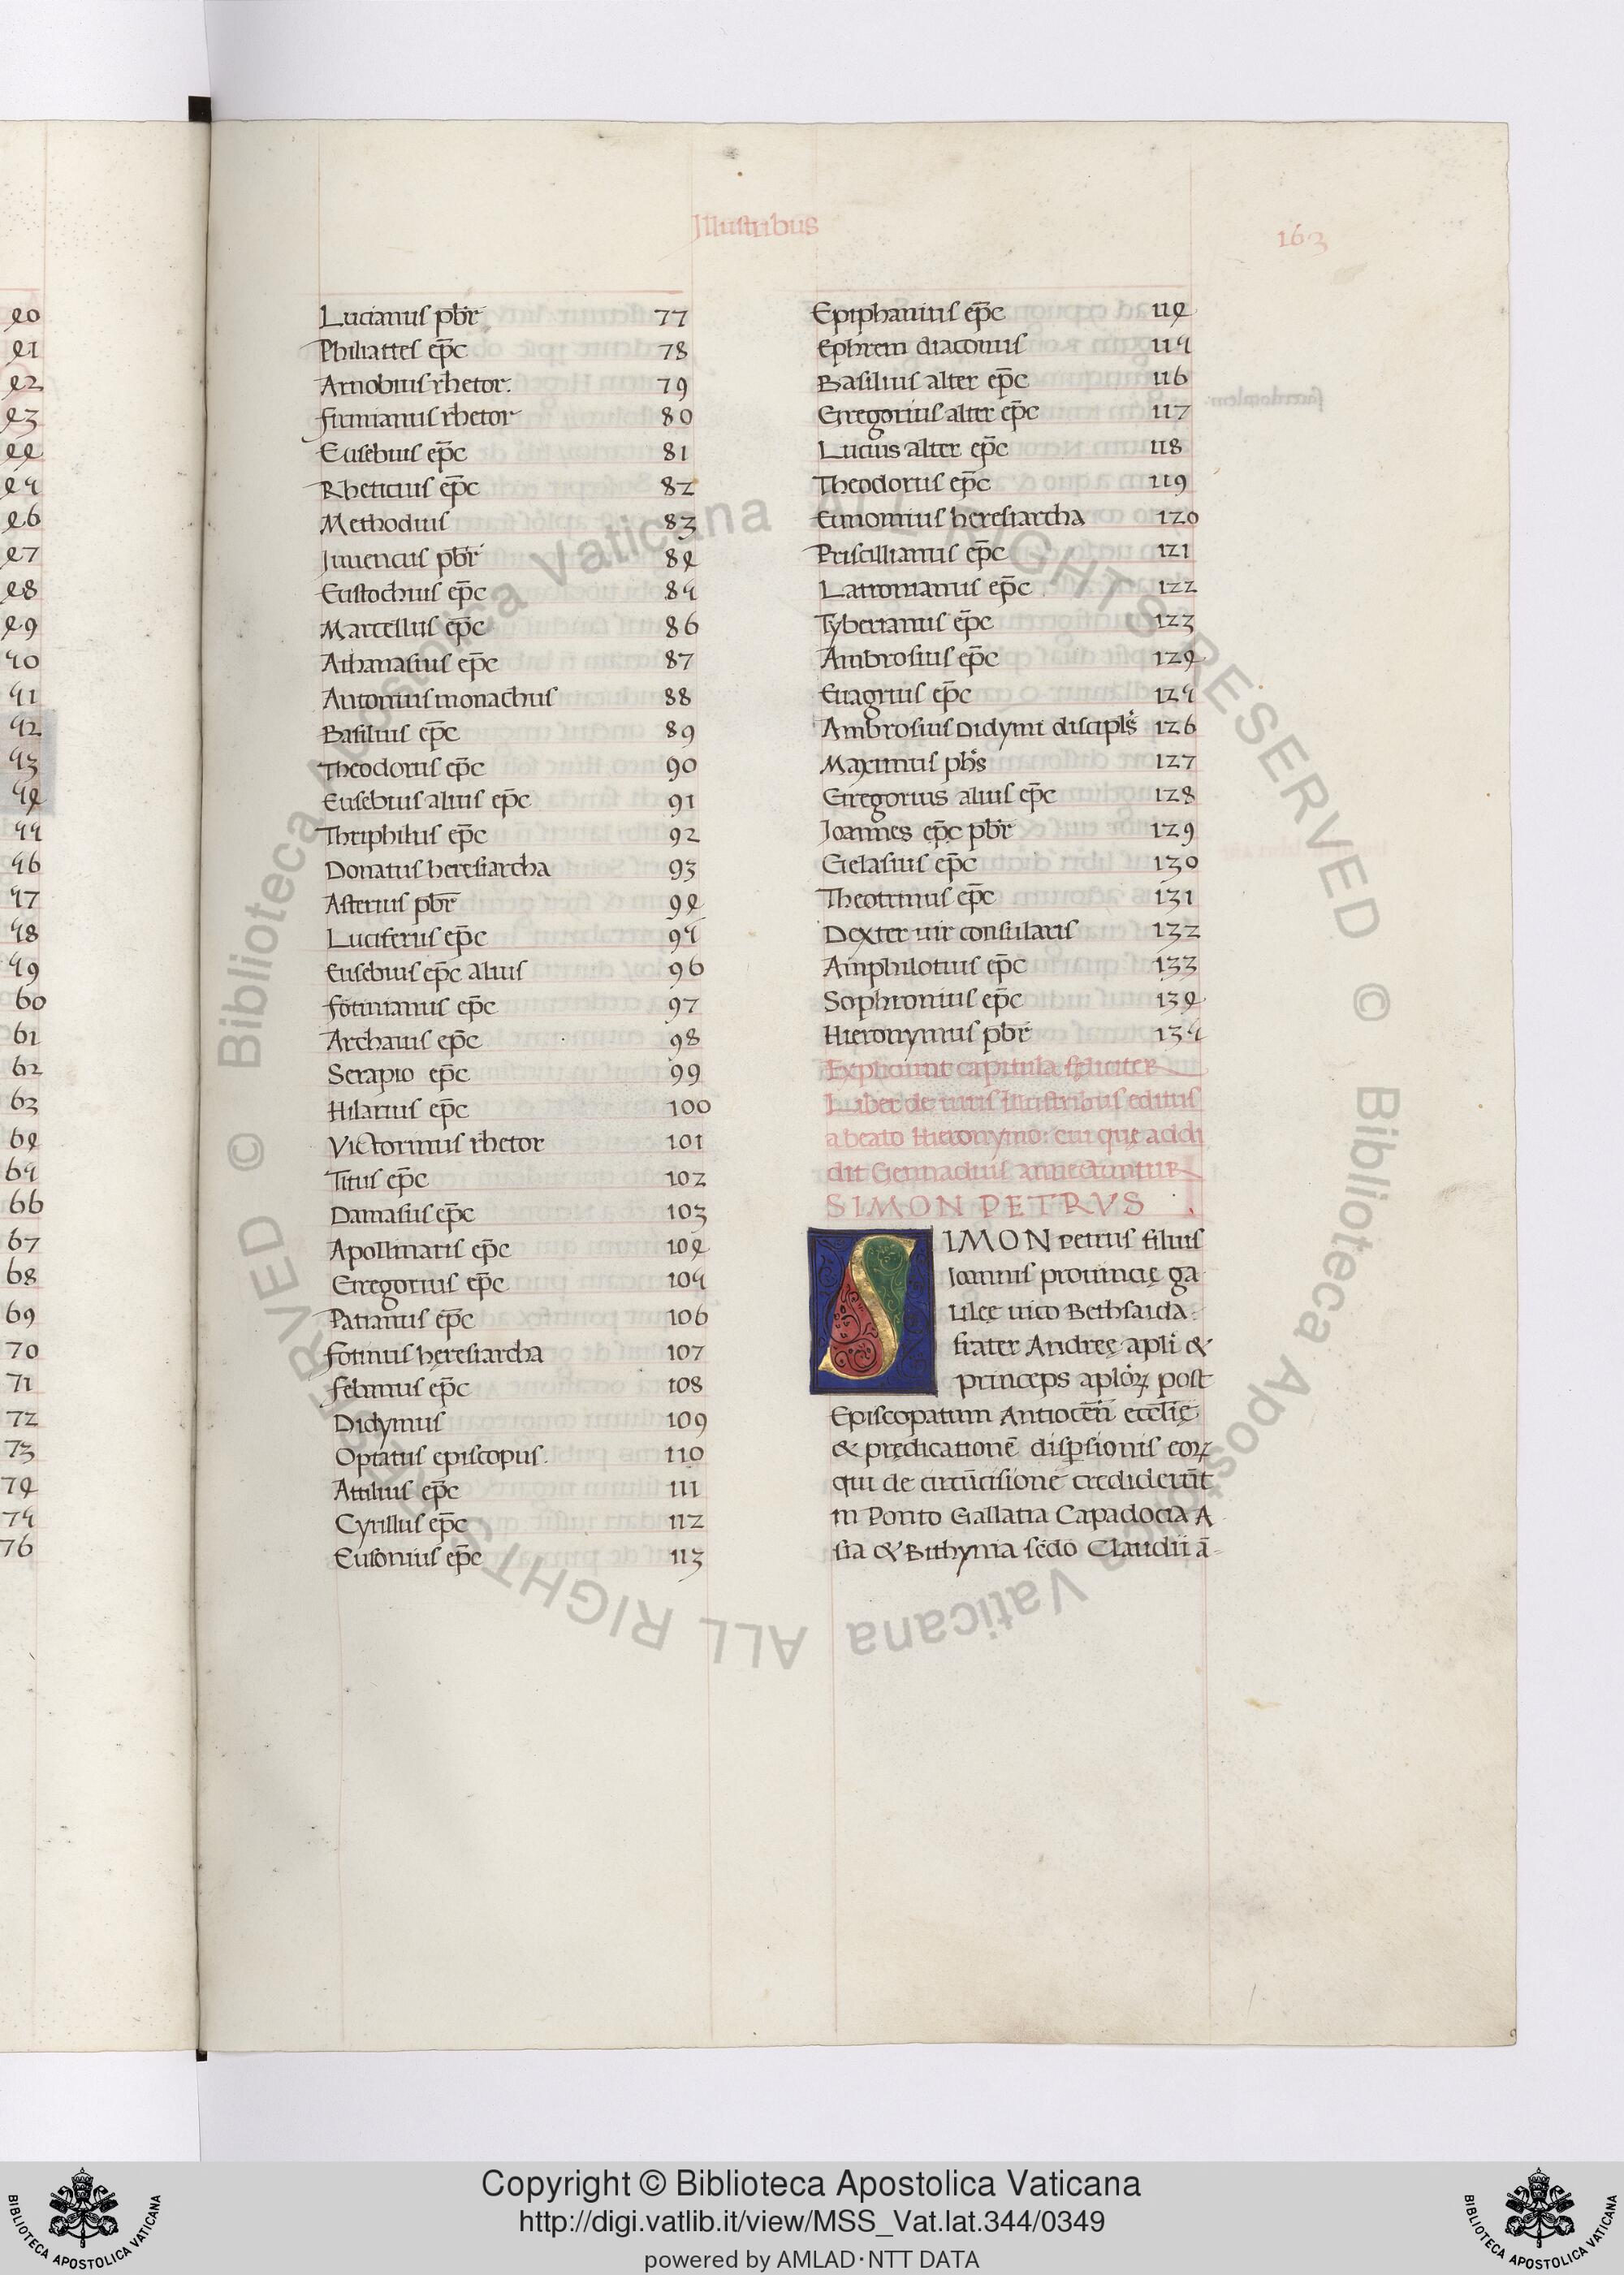 Illustribus
163
40
41
42
43
44
45
46
47
48
49
50
51
52
53
54
55
56
57
58
59
60
61
62
63
64
65
66
67
68
69
70
71
72
73
74
75
76
Lucianus pbr̄ 77
Philiattes ep̄c 78
Arnobius rhetor. 79
firmianus rhetor 80
Eusebius ep̄c 81
Rheticius ep̄c 82
Methodius 83
Iuuencus pbr̄ 84
Eustochius ep̄c 85
Marcellus ep̄c 86
Athanasius ep̄c 87
Antonius monachus 88
Basilius ep̄c 89
Theodorus ep̄c 90
Eusebius alius ep̄c 91
Thriphilus ep̄c 92
Donatus heresiarcha 93
Asterius pbr̄ 94
Luciferus ep̄c 95
Eusebius ep̄c alius 96
fotinianus ep̄c 97
Archaius ep̄c 98
Serapio ep̄c 99
Hilarius ep̄c 100
Victorinus rhetor 101
Titus ep̄c 102
Damasus ep̄c 103
Apollinaris ep̄c 104
Gregorius ep̄c 105
Patianus ep̄c 106
fotinus hęresiarcha 107
febinus ep̄c 108
Didymus 109
Optatus episcopus. 110
Attilius ep̄c 111
Cyrillus ep̄c 112
Eusonius ep̄c 113
Epiphanius ep̄c 114
Ephrem diaconus 115
Basilius alter ep̄c 116
Gregorius alter ep̄c 117
Lucius alter ep̄c 118
Theodorus ep̄c 119
Eunomius heresiarcha 120
Priscillianus ep̄c 121
Latronianus ep̄c 122
Tyberianus ep̄c 123
Ambrosius ep̄c 124
Euagrius ep̄c 125
Ambrosius Didymi discipls̄ 126
Maximus pbs̄ 127
Gregorius alius ep̄c 128
Ioannes ep̄c pbr̄ 129
Gelasius ep̄c 130
Theotimus ep̄c 131
Dexter uir consularis 132
Amphilotius ep̄c 133
Sophronius ep̄c 134
Hieronymus pbr̄ 135
Expliciunt capitula feliciter
Liber de uiris illustribus editus
a beato Hieronymo: cui quę addi
dit Gennadius annectuntur
SIMON PETRVS
SIMON Petrus filius
Ioannis prouincię ga
lilęę uico Bethsaida
frater Andreę apli &
princeps aploꝝ post
Episcopatum Antiocen̄ ecclię
& prędicationē disp̄sionis eoꝝ
qui de circūcisione crediderūt
in Ponto Gallatia Capadocia A
sia & Bithynia scdo Claudii ā
© Biblioteca Apostolica Vaticana ALL RIGHTS RESERVED © Biblioteca Apostolica Vaticana ALL RIGHTS RESERVED
Copyright © Biblioteca Apostolica Vaticana
http://digi.vatlib.it/view/MSS_Vat.lat.344/0349
powered by AMLAD·NTT DATA
BIBLIOTECA APOSTOLICA VATICANA
BIBLIOTECA APOSTOLICA VATICANA